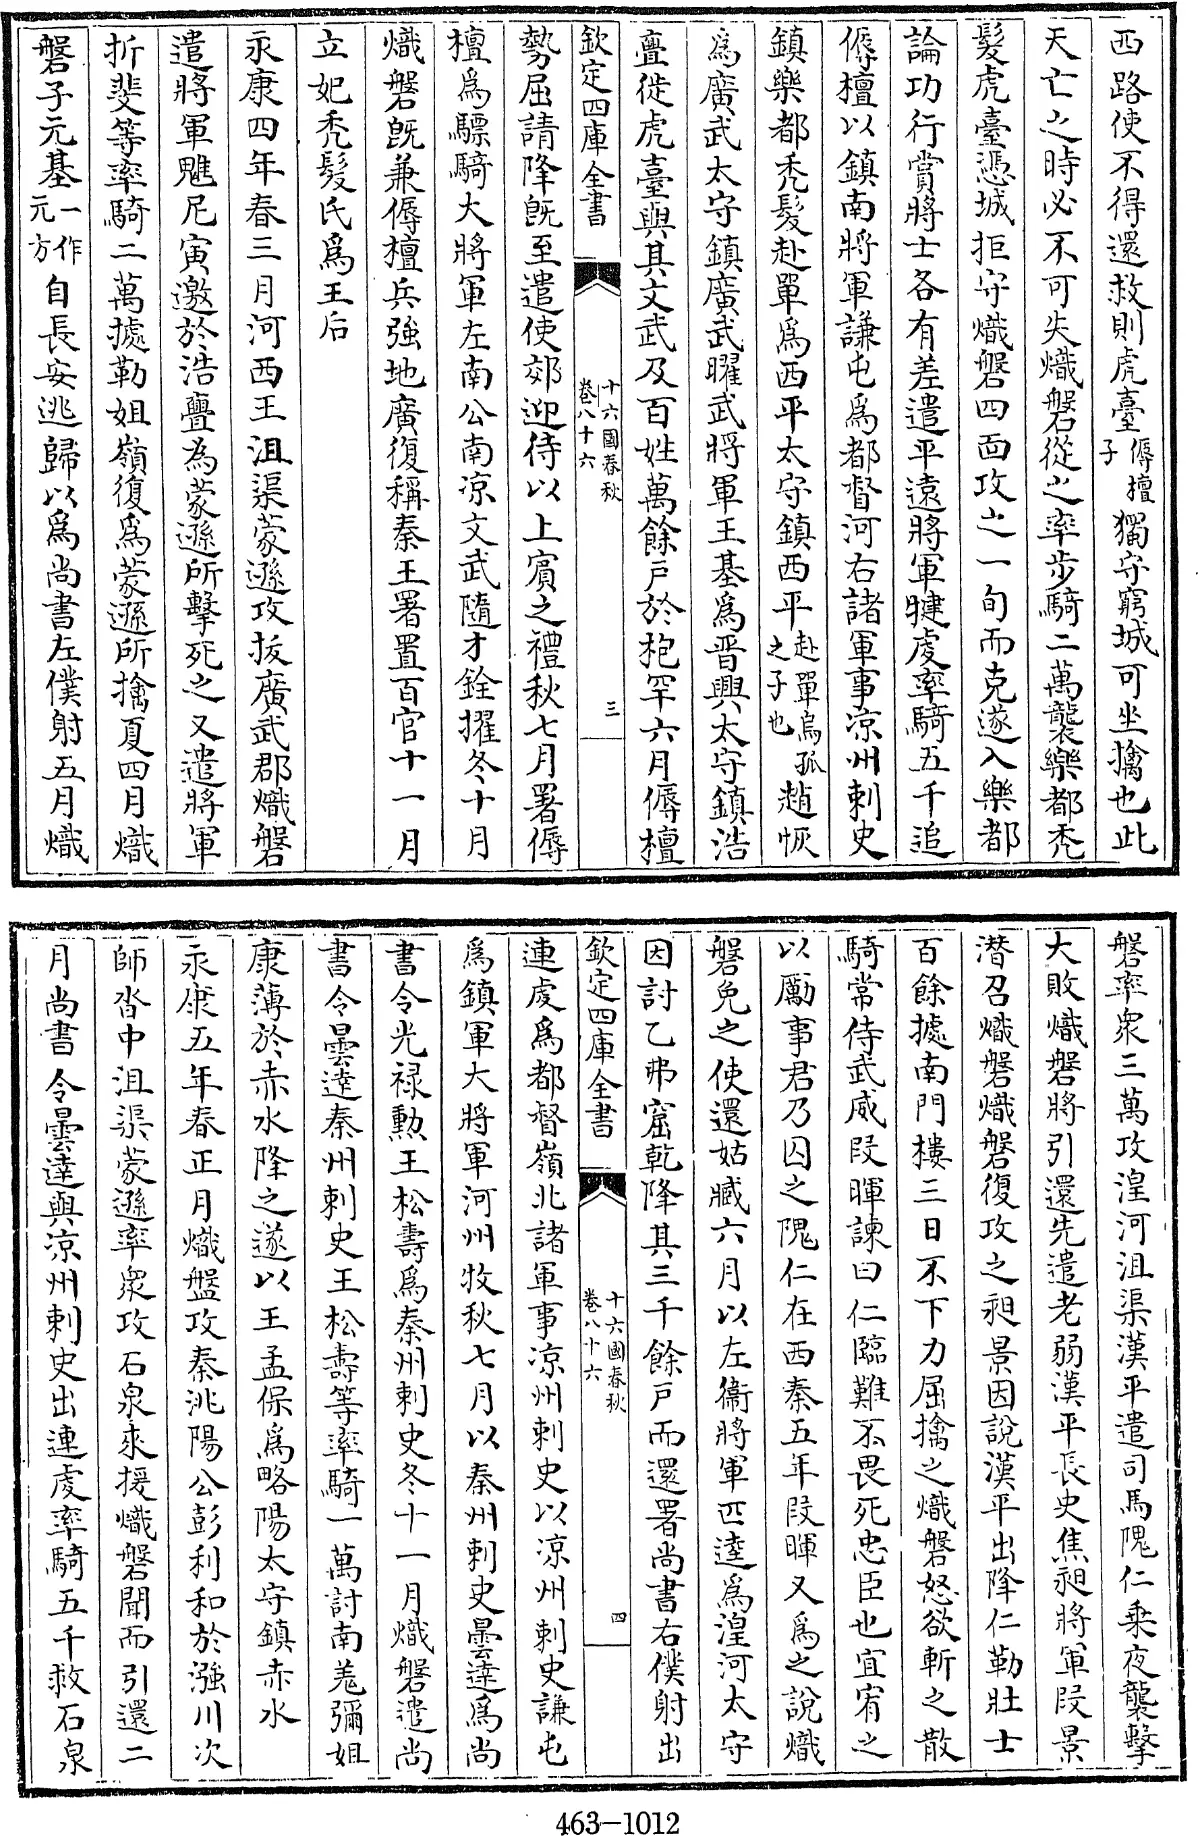 西路使不得還救則虎臺傉檀子獨守窮城可坐擒也此
天亡之時必不可失熾磐從之率步騎二萬襲樂都禿
髮虎臺憑城拒守熾磐四面攻之一旬而克遂入樂都
論功行賞將士各有差遣平遠將軍犍虔率騎五千追
傉檀以鎮南將軍謙屯爲都督河右諸軍事凉州刺史
鎮樂都禿髮赴單爲西平太守鎮西平赴單烏孤之子也趙恢
爲廣武太守鎮廣武曜武將軍王基爲晋興太守鎮浩
亹徙虎臺與其文武及百姓萬餘戸於抱罕六月傉檀
欽定四庫全書
十六國春秋
卷八十六
三
勢屈請降旣至遣使郊迎待以上賓之禮秋七月署傉
檀爲驃騎大將軍左南公南凉文武隨才銓擢冬十月
熾磐旣兼傉檀兵強地廣復稱秦王署置百官十一月
立妃禿髮氏爲王后
永康四年春三月河西王沮渠蒙遜攻拔廣武郡熾磐
遣將軍魋尼寅邀於浩亹為蒙遜所擊死之又遣將軍
折斐等率騎二萬據勒姐嶺復爲蒙遜所擒夏四月熾
磐子元基一作元方自長安逃歸以爲尚書左僕射五月熾
磐率衆三萬攻湟河沮渠漢平遣司馬隗仁乘夜襲擊
大敗熾磐將引還先遣老弱漢平長史焦昶將軍段景
潛召熾磐熾磐復攻之昶景因說漢平出降仁勒壯士
百餘據南門樓三日不下力屈擒之熾磐怒欲斬之散
騎常侍武威段暉諫曰仁臨難不畏死忠臣也宜宥之
以勵事君乃囚之隗仁在西秦五年段暉又爲之說熾
磐免之使還姑臧六月以左衞將軍匹逵爲湟河太守
因討乙弗窟乾降其三千餘戸而還署尚書右僕射出
欽定四庫全書
十六國春秋
卷八十六
四
連虔爲都督嶺北諸軍事凉州刺史以凉州刺史謙屯
爲鎮軍大將軍河州牧秋七月以秦州刺史曇達爲尚
書令光祿勲王松壽爲秦州刺史冬十一月熾磐遣尚
書令曇達秦州刺史王松壽等率騎一萬討南羗彌姐
康薄於赤水降之遂以王孟保爲略陽太守鎮赤水
永康五年春正月熾盤攻秦洮陽公彭利和於漒川次
師沓中沮渠蒙遜率衆攻石泉來援熾磐聞而引還二
月尚書令曇達與凉州刺史出連虔率騎五千救石泉
463-1012